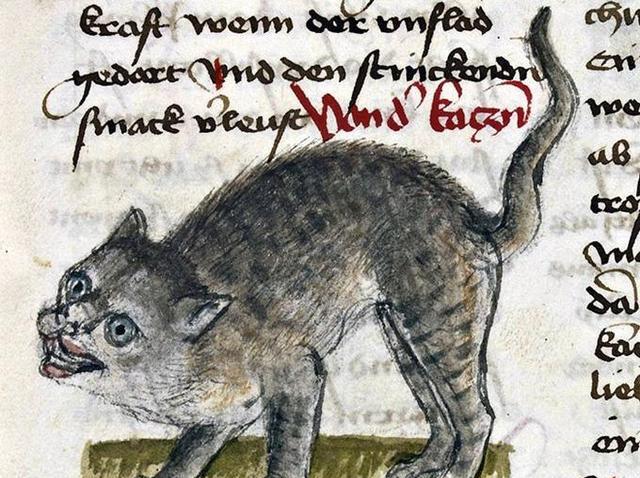 kraft wenn der vnflad
gedort vnd den stinckendn
smack v'leust Vand' kaczn
chu
en
we
ab
tro
da
lieb
ein